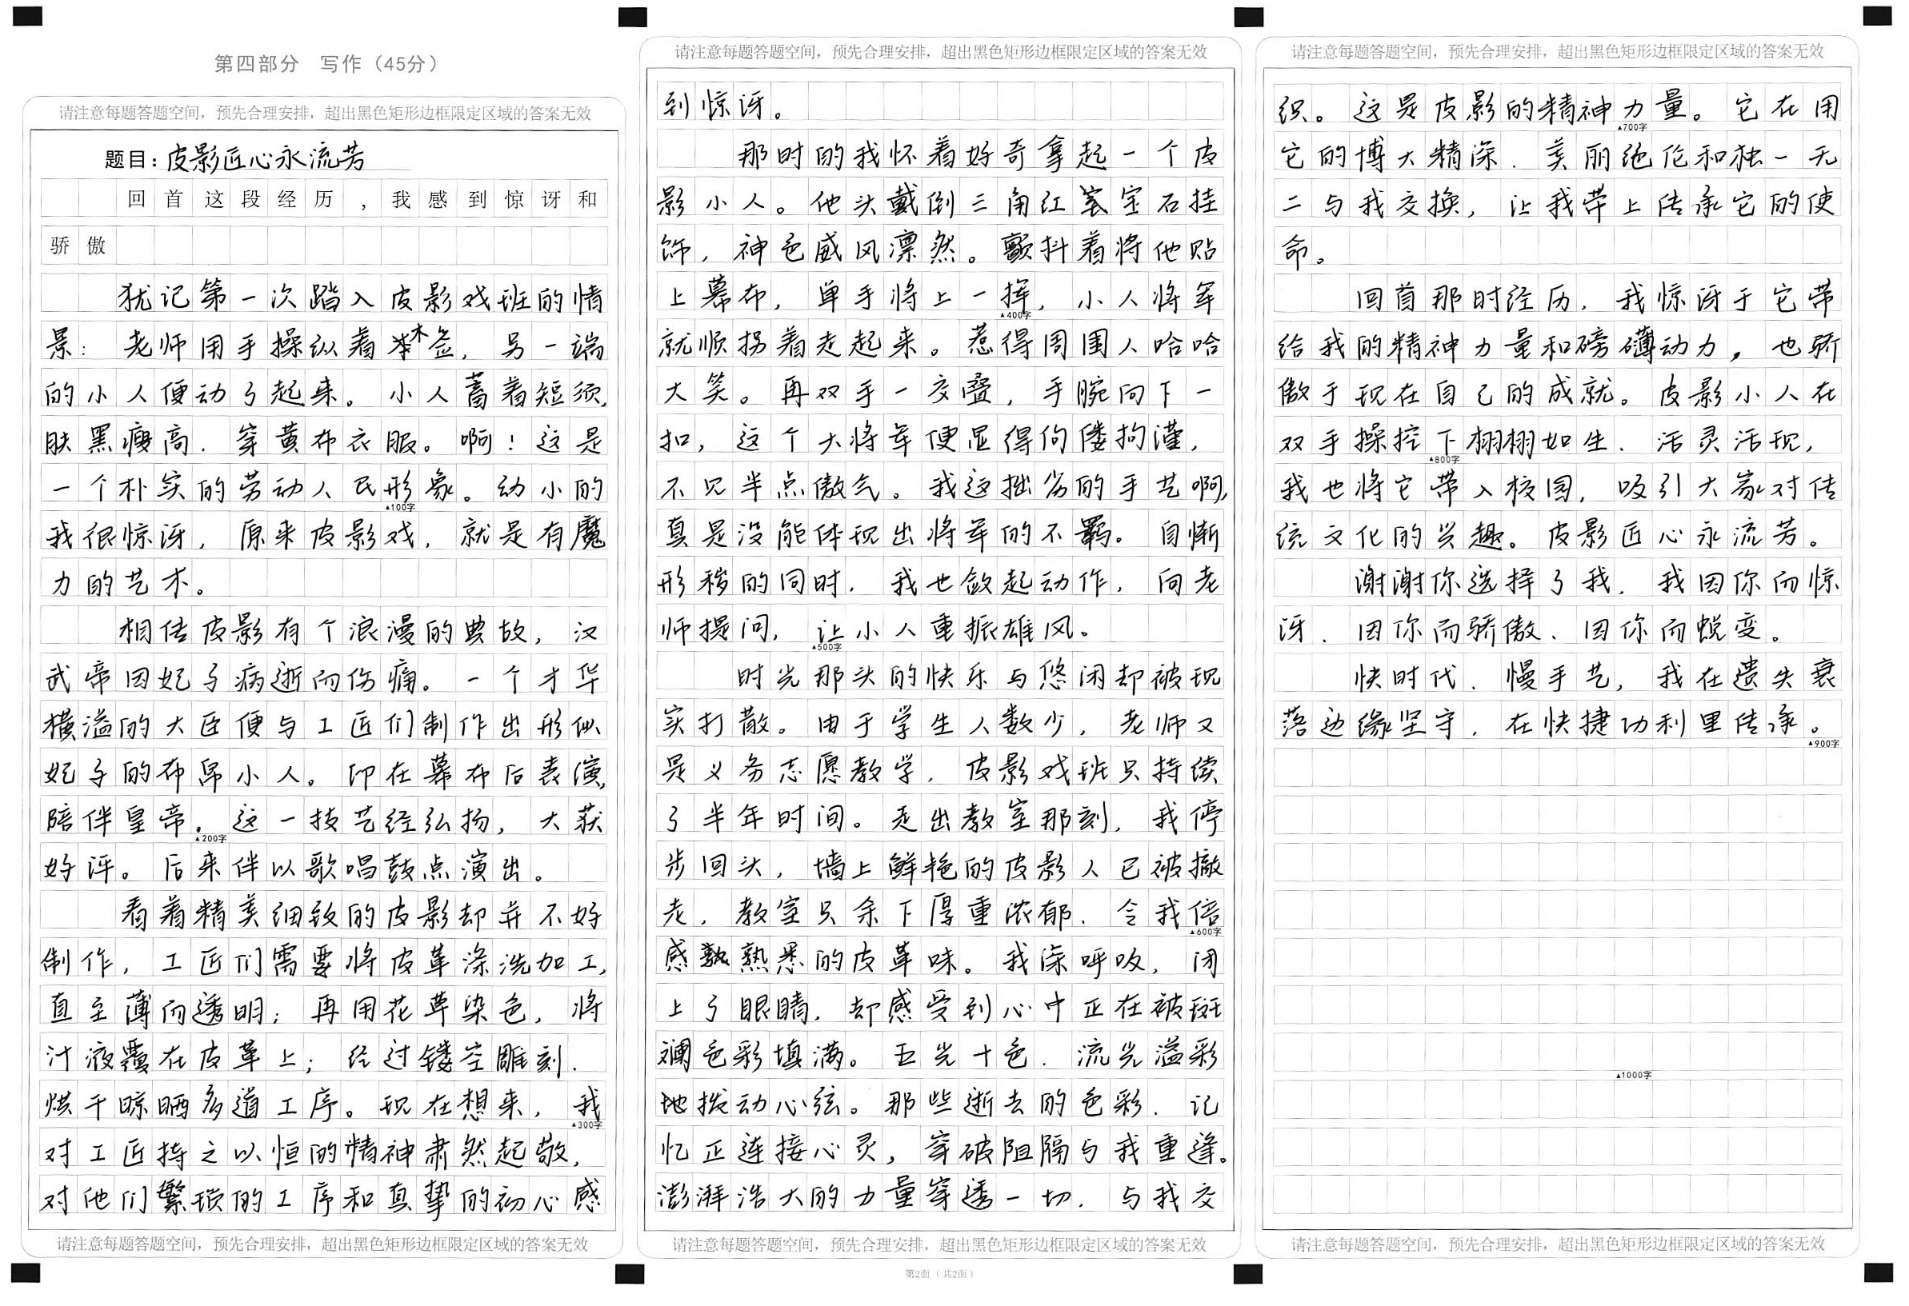 第四部分 写作（45分）
请注意每题答题空间，预先合理安排，超出黑色矩形边框限定区域的答案无效
题目：皮影匠心永流芳
回首这段经历，我感到惊讶和
骄傲
犹记第一次踏入皮影戏班的情
景：老师用手操纵着木签，另一端
的小人便动了起来。小人蓄着短须，
肤黑瘦高，穿黄布衣服。啊！这是
一个朴实的劳动人民形象。幼小的
▲100字
我很惊讶，原来皮影戏，就是有魔
力的艺术。
相传皮影有个浪漫的典故，汉
武帝因妃子病逝而伤痛。一个才华
横溢的大臣便与工匠们制作出形似
妃子的布帛小人。印在幕布后表演，
陪伴皇帝。这一技艺经弘扬，大获
▲200字
好评。后来伴以歌唱鼓点演出。
看着精美细致的皮影却并不好
制作，工匠们需要将皮革涤洗加工，
直至薄而透明；再用花草染色，将
汁液覆在皮革上；经过镂空雕刻、
烘干晾晒多道工序。现在想来，我
▲300字
对工匠持之以恒的精神肃然起敬，
对他们繁琐的工序和真挚的初心感
请注意每题答题空间，预先合理安排，超出黑色矩形边框限定区域的答案无效
请注意每题答题空间，预先合理安排，超出黑色矩形边框限定区域的答案无效
到惊讶。
那时的我怀着好奇拿起一个皮
影小人。他头戴倒三角红宝石挂
饰，神色威风凛然。颤抖着将他贴
上幕布，单手将上一挥，小人将军
▲400字
就顺拐着走起来。惹得周围人哈哈
大笑。再双手一交叠，手腕向下一
扣，这个大将军便显得佝偻拘谨，
不见半点傲气。我这拙劣的手艺啊，
真是没能体现出将军的不羁。自惭
形秽的同时，我也敛起动作，向老
师提问，让小人重振雄风。
▲500字
时光那头的快乐与悠闲却被现
实打散。由于学生人数少，老师又
是义务志愿教学，皮影戏班只持续
了半年时间。走出教室那刻，我停
步回头，墙上鲜艳的皮影人已被撤
走，教室只余下厚重浓郁、令我倍
▲600字
感熟悉的皮革味。我深呼吸，闭
上了眼睛，却感受到心中正在被斑
斓色彩填满。五光十色、流光溢彩
地拨动心弦。那些逝去的色彩、记
忆正连接心灵，穿破阻隔与我重逢。
澎湃浩大的力量穿透一切，与我交
请注意每题答题空间，预先合理安排，超出黑色矩形边框限定区域的答案无效
第2面（共2面）
请注意每题答题空间，预先合理安排，超出黑色矩形边框限定区域的答案无效
织。这是皮影的精神力量。它在用
▲700字
它的博大精深、美丽绝伦和独一无
二与我交换，让我带上传承它的使
命。
回首那时经历，我惊讶于它带
给我的精神力量和磅礴动力，也骄
傲于现在自己的成就。皮影小人在
双手操控下栩栩如生、活灵活现，
▲800字
我也将它带入校园，吸引大家对传
统文化的兴趣。皮影匠心永流芳。
谢谢你选择了我，我因你而惊
讶、因你而骄傲、因你而蜕变。
快时代、慢手艺，我在遗失衰
落边缘坚守，在快捷功利里传承。
▲900字
▲1000字
请注意每题答题空间，预先合理安排，超出黑色矩形边框限定区域的答案无效